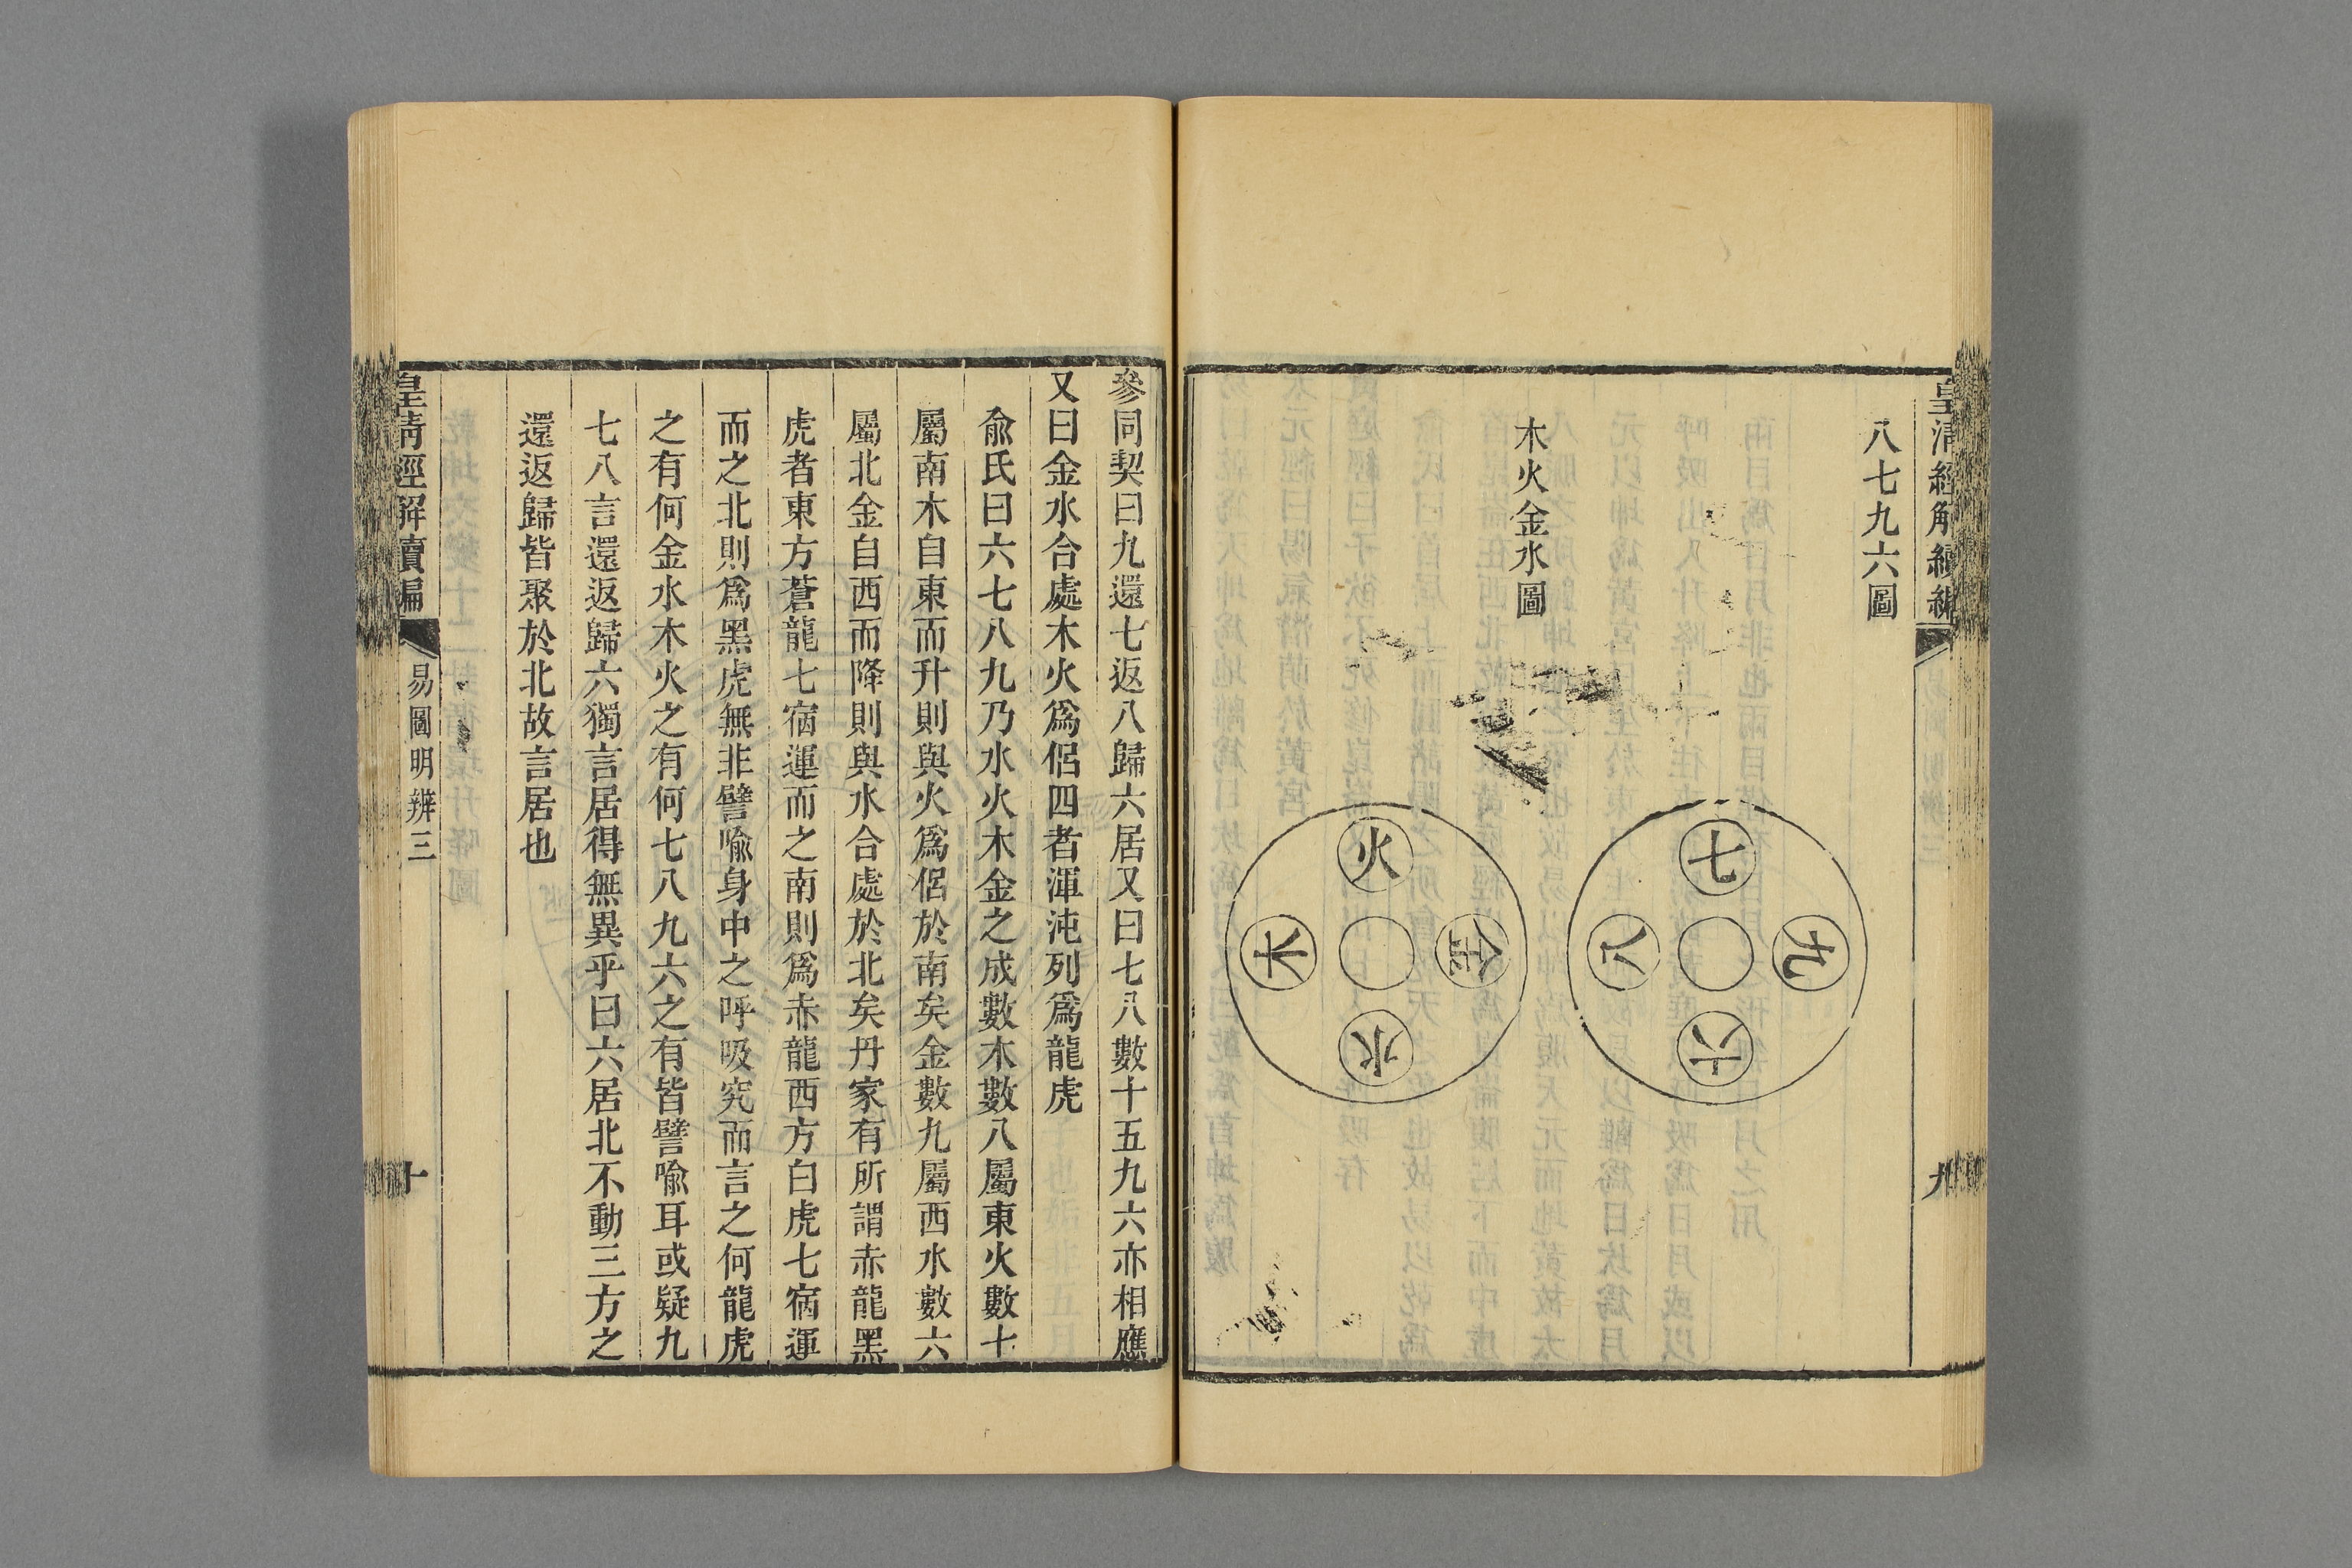 皇清經解續編
九
八七九六圖
七
九
八
六
木火金水圖
火
金
木
水
參同契曰九還七返八歸六居又曰七八數十五九六亦相應
又曰金水合處木火爲侶四者渾沌列爲龍虎
俞氏曰六七八九乃水火木金之成數木數八屬東火數七
屬南木自東而升則與火爲侶於南矣金數九屬西水數六
屬北金自西而降則與水合處於北矣丹家有所謂赤龍黑
虎者東方蒼龍七宿運而之南則爲赤龍西方白虎七宿運
而之北則爲黑虎無非譬喻身中之呼吸究而言之何龍虎
之有何金水木火之有何七八九六之有皆譬喻耳或疑九
七八言還返歸六獨言居得無異乎曰六居北不動三方之
還返歸皆聚於北故言居也
皇清經解續編
易圖明辨三
十